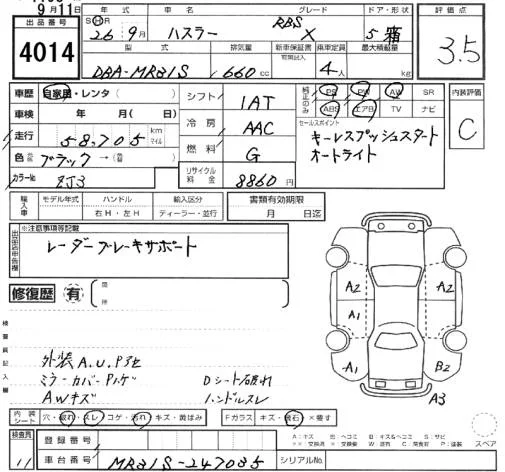 9月11日
出品番号 4014
年式 車名 グレード ドア・形状
SHR 26年9月 ハスラー RBS X 5 箱
型式 排気量 新車保証書 乗車定員 最大積載量
有無記入
DBA-MR31S 660cc 4人 kg
評価点
3.5
車歴 自家用・レンタ( )
車検 年 月( 日)
走行 58,705 km マイル
色 ブラック→( )
カラーNo ZJ3
シフト IAT
冷房 AAC
燃料 G
リサイクル料金 8860円
純正のみ PS PW AW SR
ABS エアB TV ナビ
セールスポイント
キーレスプッシュスタート
オートライト
内装評価
C
輸入車 モデル年式 ハンドル 輸入区分
右H・左H ディーラー・並行
書類有効期限
月 日迄
出品店申告欄 ※注意事項等記載
レーダーブレーキサポート
修復歴 有
検査員記入欄
外装A.U.P他
ミラーカバーPハゲ Dシート破れ
AWキズ ハンドルスレ
A2 A2
A1
A1 B2
A3
内装シート 穴・破れ・スレ・コゲ・汚れ・キズ・黄ばみ
Fガラス キズ・飛石・×要す
スペア
検査員 11
登録番号
車台番号 MR31S-247035
シリアルNo.